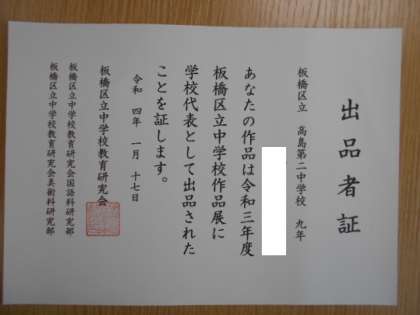 出品者証
板橋区立 高島第二中学校 九年
あなたの作品は令和三年度
板橋区立中学校作品展に
学校代表として出品された
ことを証します。
令和 四年 一月 十七日
板橋区立中学校教育研究会
板橋区立中学校教育研究会国語科研究部
板橋区立中学校教育研究会美術科研究部